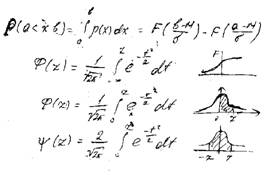 P(a<x<b)=∫p(x)dx = F((b-M)/σ) - F((a-M)/σ)
φ(z) = 1/√2π ∫ e^(-t²/2) dt F
φ(z) = 1/√2π ∫₀^z e^(-t²/2) dt 0 z
ψ(z) = 2/√2π ∫₀^z e^(-t²/2) dt -z z